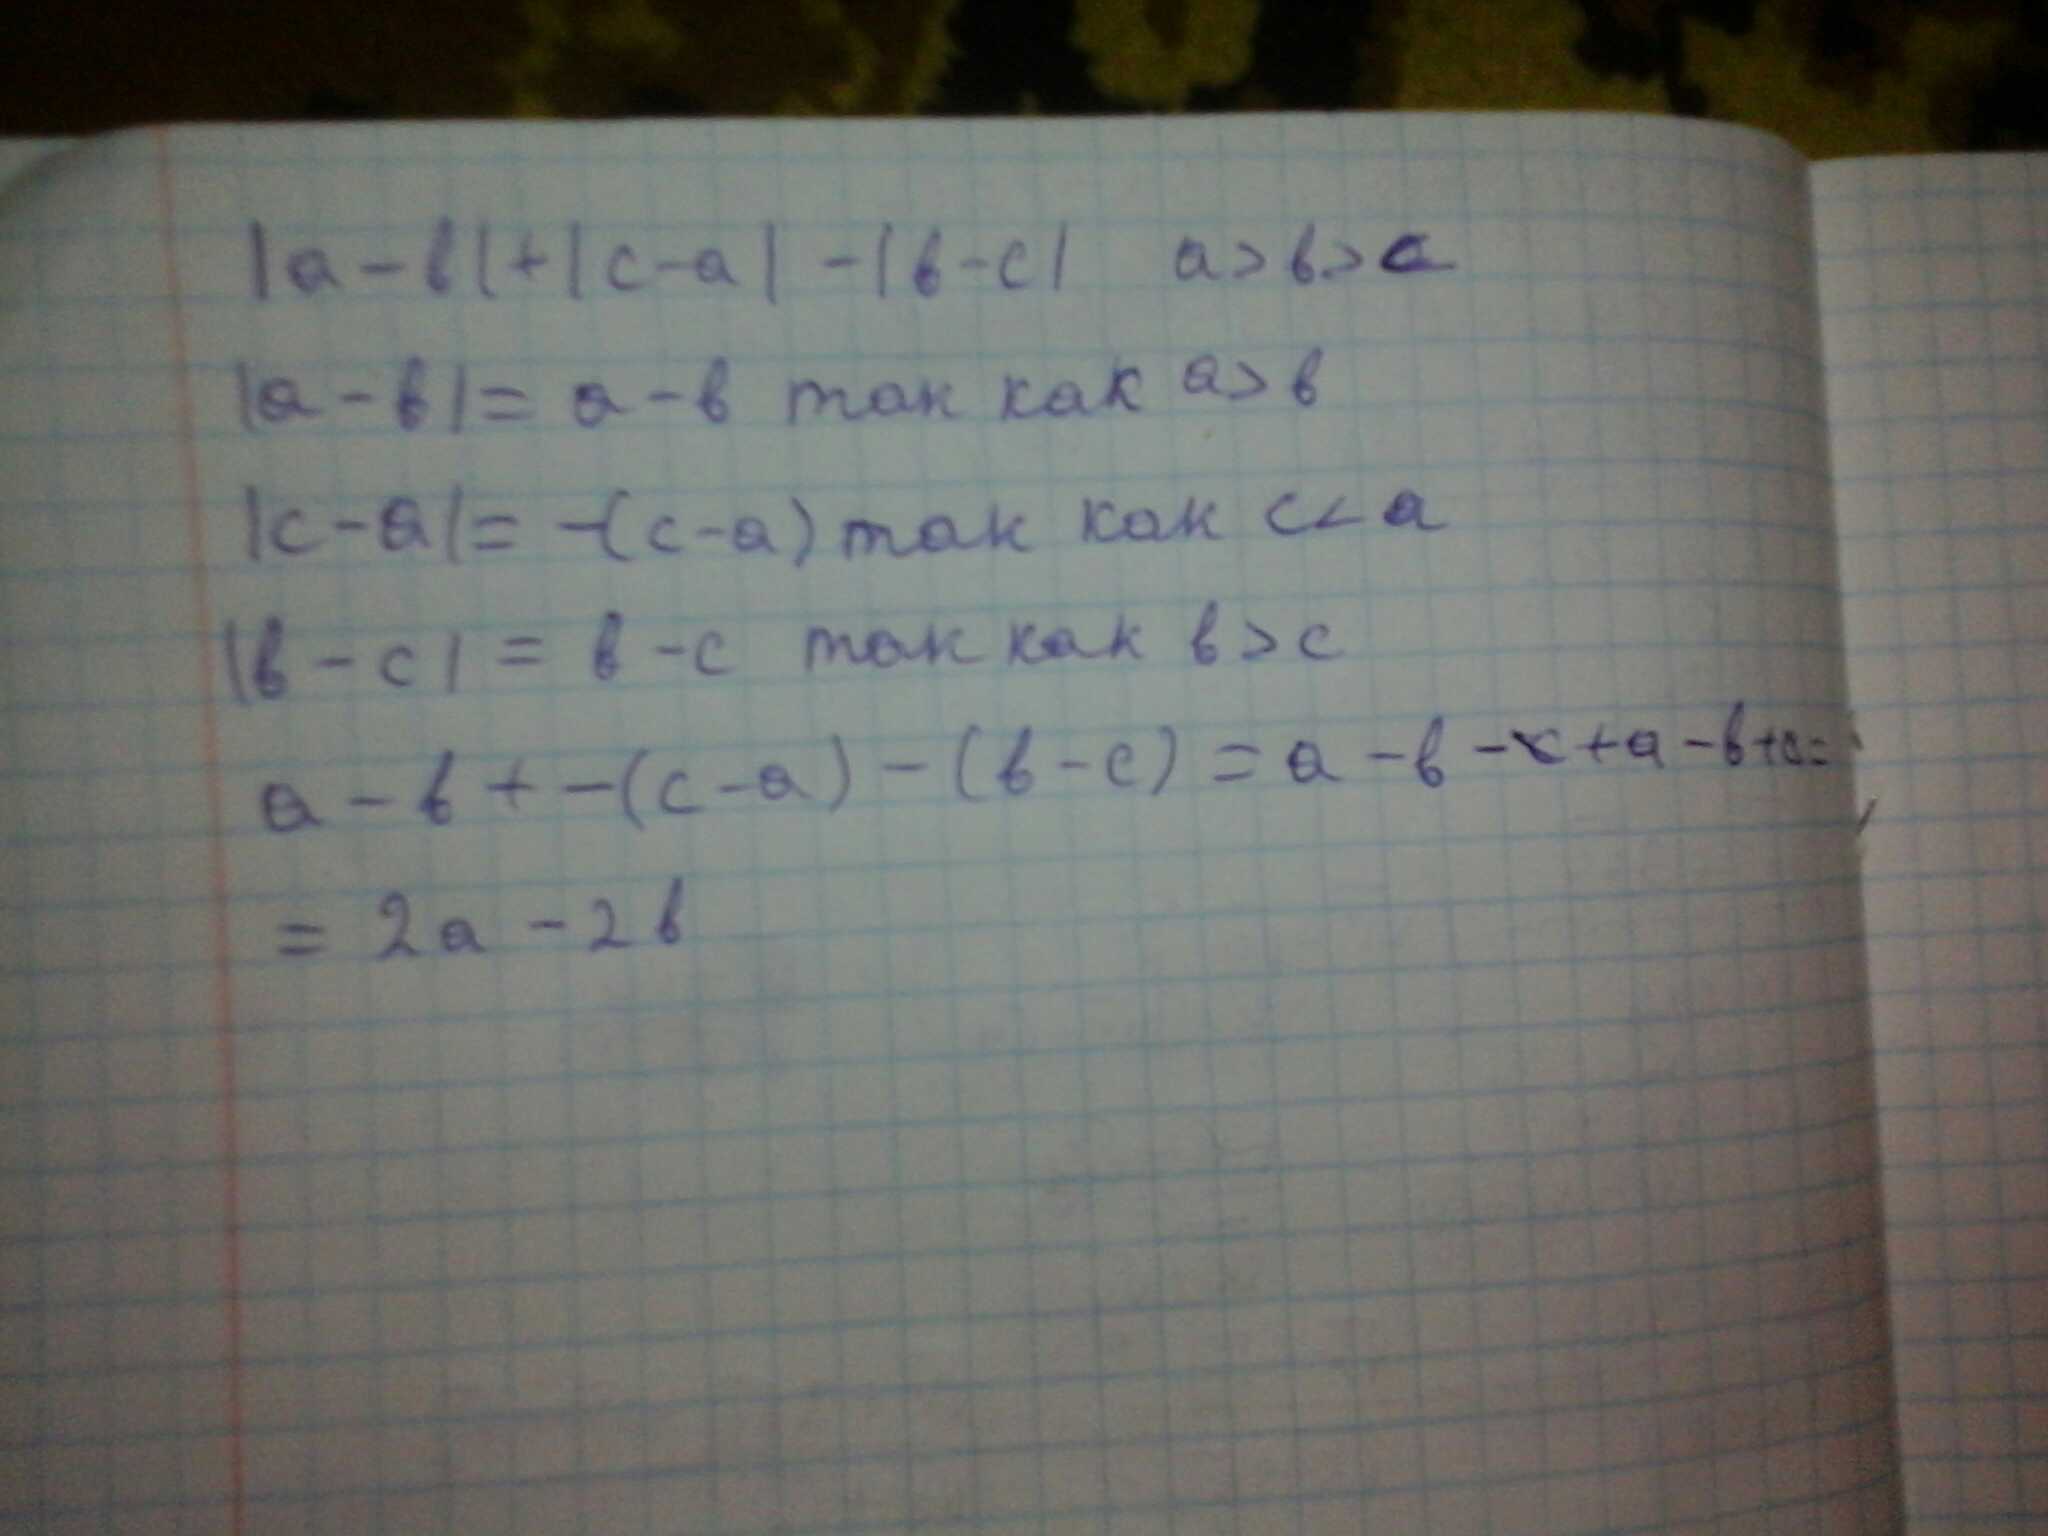 |a-в|+|c-a|-|в-c| a>в>c
|a-в|=a-в так как a>в
|c-a|=-(c-a) так как c<a
|в-c|=в-c так как в>c
a-в+-(c-a)-(в-c)=a-в-c+a-в+c=
=2a-2в